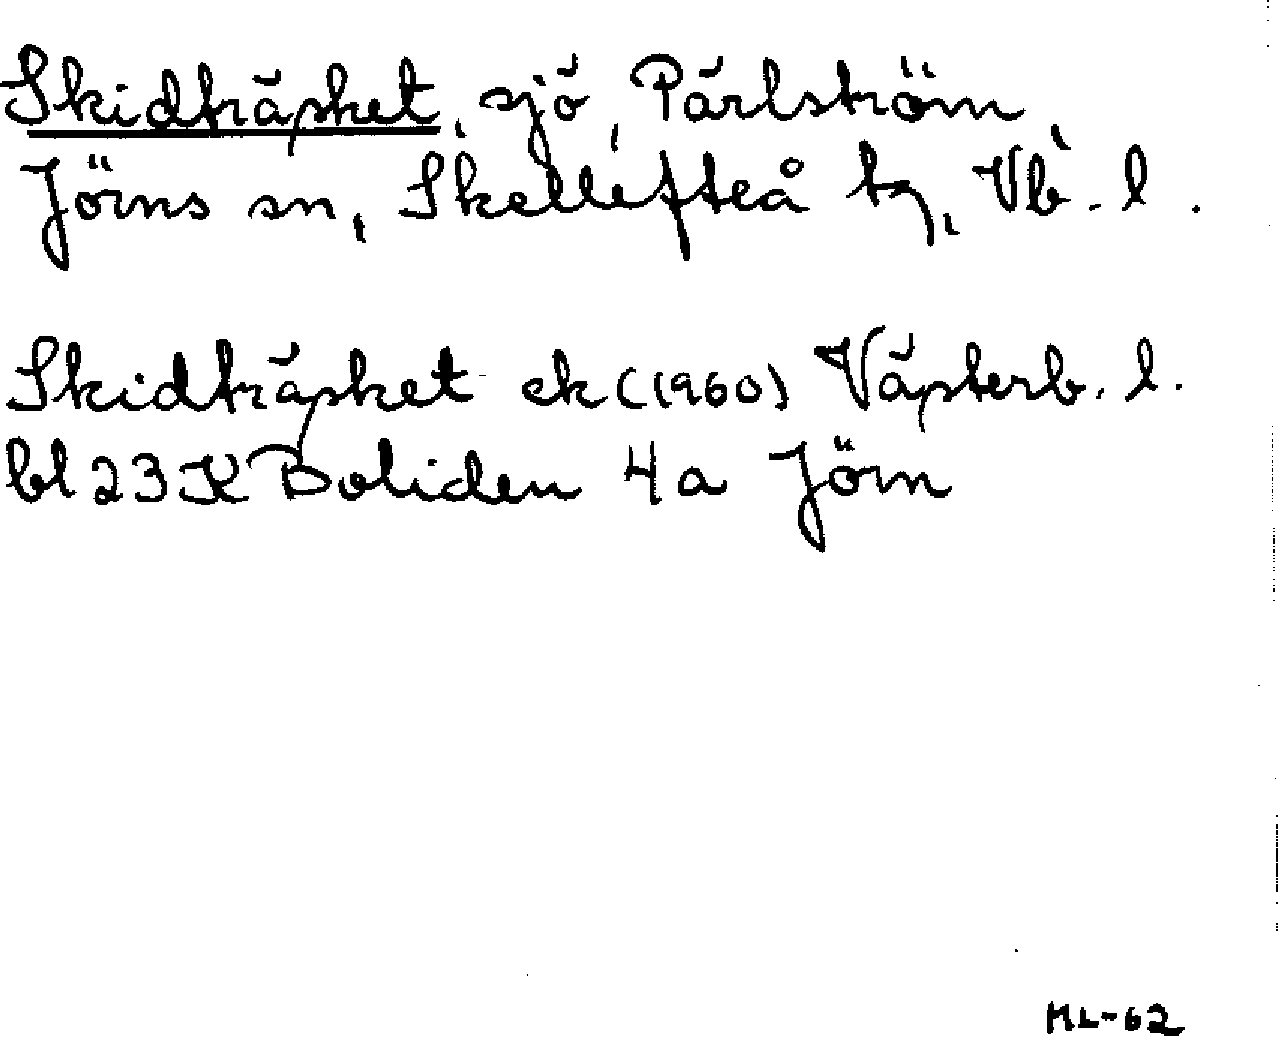 Skidträsket, sjö, Pärlström,
Jörns sn, Skellefteå tg, Vb. l.
Skidträsket ek (1960) Västerb. l.
bl 23 K Boliden 4a Jörn
ML-62